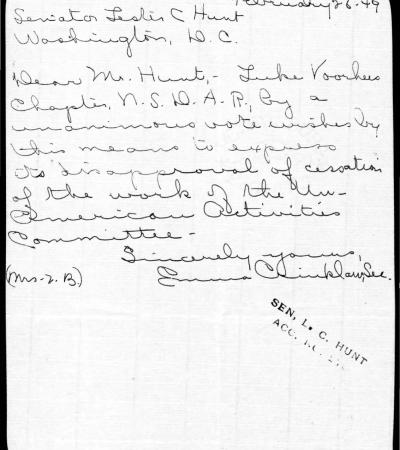 February 26-49
Senator Leslie C Hunt
Washington, D.C.
Dear Mr. Hunt,- Luke Voorhees
Chapter, N.S.D.A.R., by a
unanimous vote wishes by
this means to express
its disapproval of cessation
of the work of the Un-
American Activities
Committee-
Sincerely yours,
(Mrs-F.B.) Emma C Sec.
SEN. L. C. HUNT
ACC. NO.